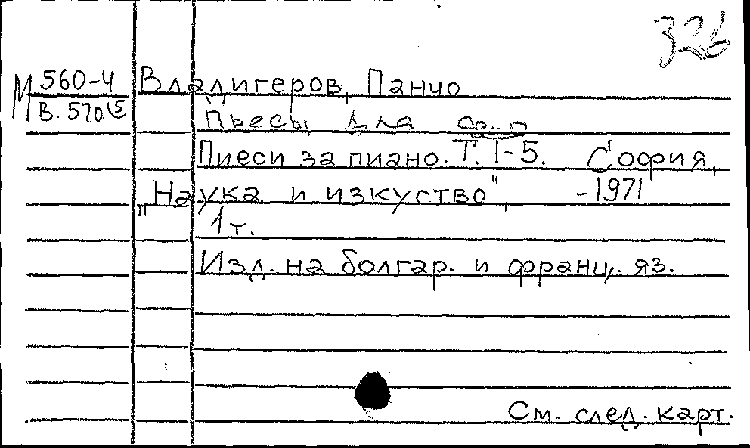 326
М 560-4 Владигеров, Панчо
В. 570(5
Пьесы для ф.-п
Пиеси за пиано. Т. 1-5. София,
"Наука и изкуство", -1971
1т.
Изд. на болгар. и франц. яз.
См. след. карт.